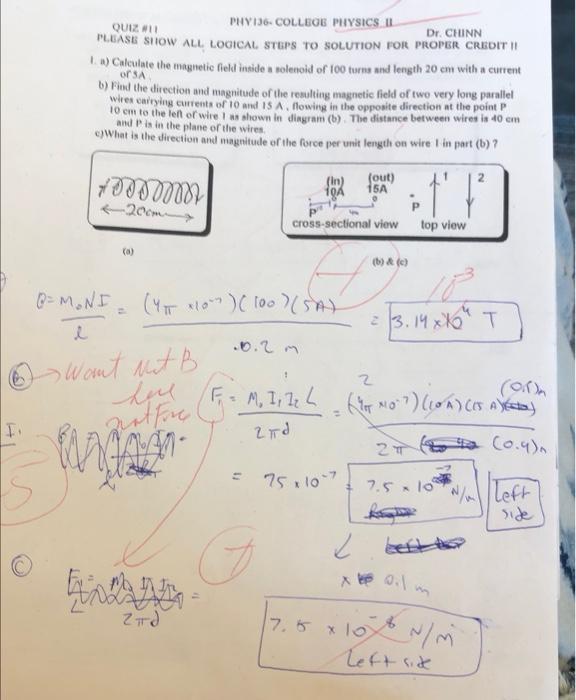 QUIZ #11
PHY136- COLLEGE PHYSICS II
Dr. CHINN
PLEASE SHOW ALL LOGICAL STEPS TO SOLUTION FOR PROPER CREDIT !!
1. a) Calculate the magnetic field inside a solenoid of 100 turns and length 20 cm with a current
of 5A.
b) Find the direction and magnitude of the resulting magnetic field of two very long parallel
wires carrying currents of 10 and 15 A, flowing in the opposite direction at the point P
10 cm to the left of wire 1 as shown in diagram (b). The distance between wires is 40 cm
and P is in the plane of the wires.
c)What is the direction and magnitude of the force per unit length on wire 1 in part (b) ?
20cm
(in) (out)
10A 15A
P
cross-sectional view
P 1 2
top view
(a)
(b) & (c)
10^-3
B = M₀NI / l = (4π x10^-7)(100)(5A) / 0.2 m = 3.14 x 10 T
(B) → Want Net B
here
not Force
F₁ = M₀ I₁ I₂ L / 2πd = (4π x10^-7)(10A)(15 A) (0.1)m / 2π (0.4)m
2
= 75 x 10^-7 = 7.5 x 10 N/m
Left
side
I.
5
x 0.1 m
(C)
2πd =
7.5 x 10^-8 N/m
Left side